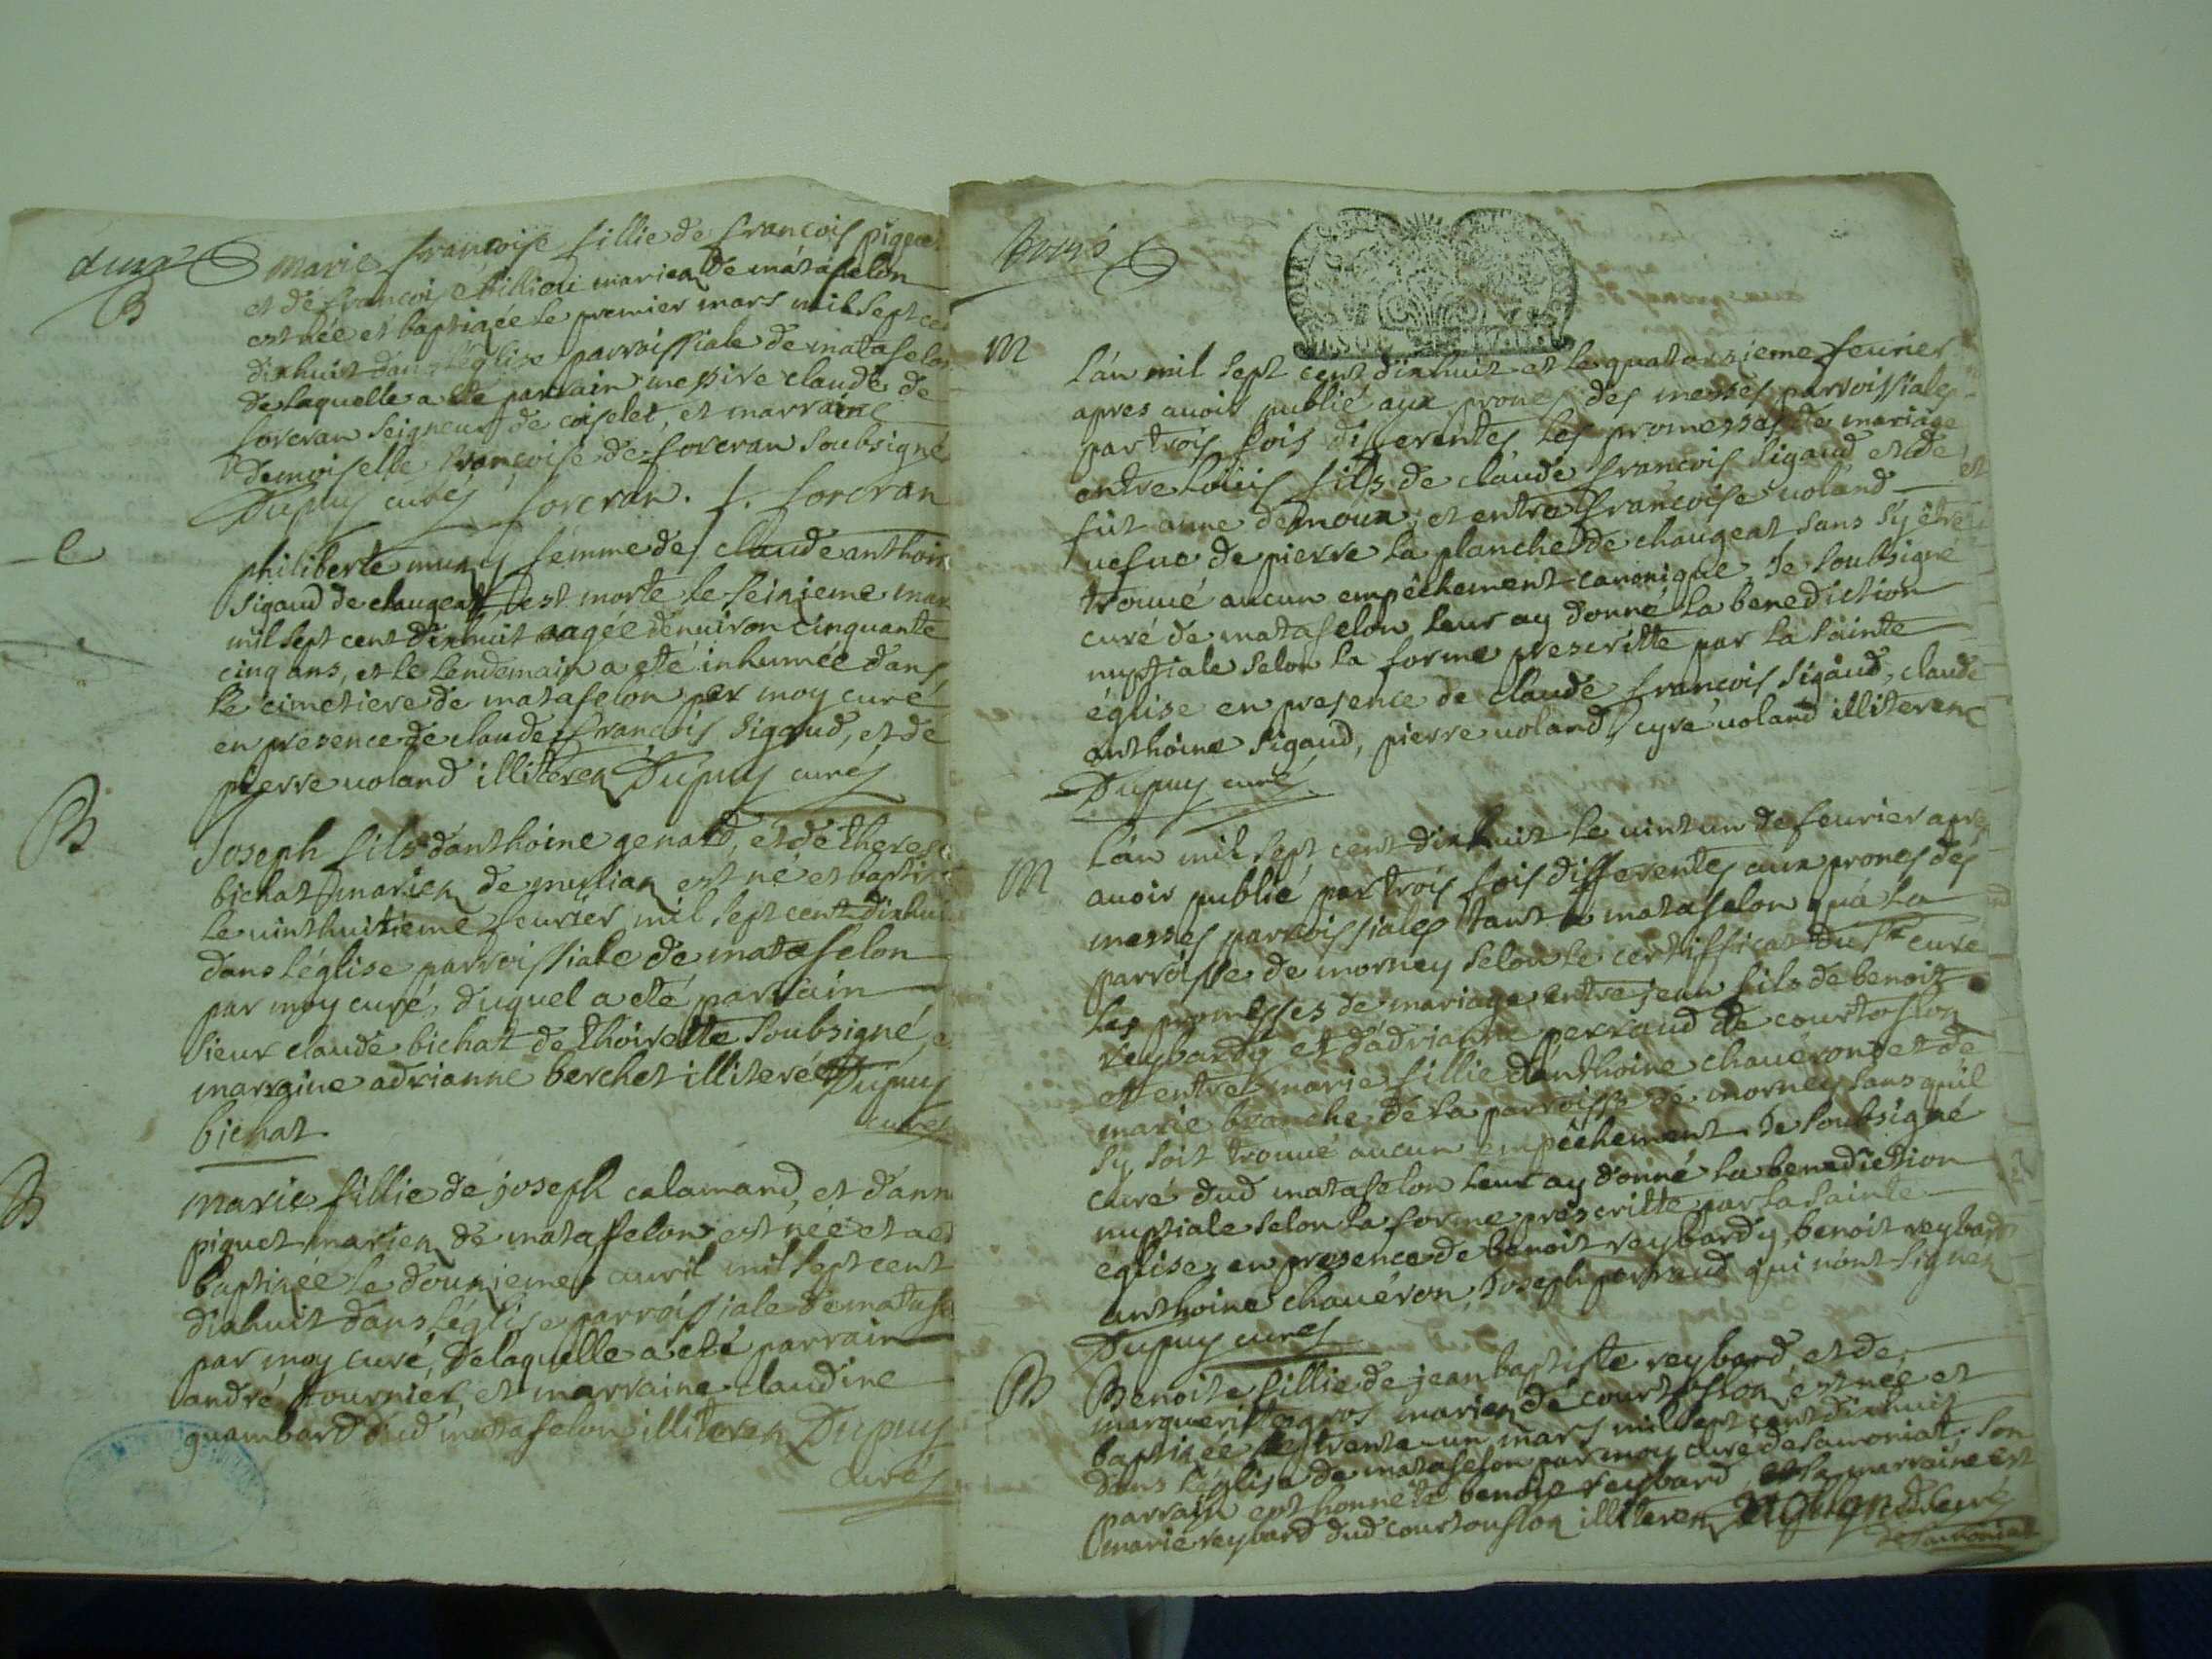 deux
B
Marie francoise fillie de francois
et de francoise mariez de mataselon
est née et baptizée le premier mars mil sept ce
dixhuit dans l'église parroissiale de mataselon
de laquelle a été parrain messire claude de
forcran seigneur de coiselet, et marraine
demoiselle francoise de forcran soubsigné
Dupuy curé forcran. f. forcran
philiberte muzy femme de claude anthoine
Sigaud de chaugeat est morte le seizieme mar
mil sept cent dixhuit aagée denuiron cinquante
cinq ans, et le lendemain a eté inhumée dans
le cimetiere de mataselon par moy curé
en presence de claude francois Sigaud, et de
pierre uoland illiterez Dupuy curé
B
Joseph fils danthoine genard, et de therese
bichat mariez de est né et baptizé
le uinthuitieme feurier mil sept cent dixhui
dans l'église parroissiale de mataselon
par moy curé, duquel a eté parrain
sieur claude bichat de thoirette soubsigné, e
marraine adrianne berchet illiterée Dupuy
bichat curé
B
Marie fillie de joseph calamand, et dann
piquet mariez de mataselon est née et a et
baptizée le douzieme auril mil sept cent
dixhuit dans l'église parroissiale de matase
par moy curé, de laquelle a eté parrain
andré tournier, et marraine claudine
guambard dud mataselon illiterez Dupuy
curé
trois
M
L'an mil sept cent dixhuit et le quatorzieme feurier
apres auoir publié aux prones des messes parroissiales
par trois fois differentes les promesses de mariage
entre Loüis fils de claude francois Sigaud et de
fût anne demoux, et entre francoise uoland
uefue de pierre la planche de chaugeat sans s'y être
trouué aucun empêchement canonique Je soubsigné
curé de mataselon leur ay donné la benediction
nuptiale selon la forme prescritte par la sainte
église en presence de claude francois Sigaud, claude
anthoine Sigaud, pierre uoland, cyre uoland illiterez
Dupuy curé
M
L'an mil sept cent dixhuit le uint un de feurier apre
auoir publié par trois fois differentes aux prones des
messes parroissiales tant a mataselon qu'a la
parroisse de mornay selon le certifficat du Sr curé
les promesses de mariage entre jean fils de benoit
reybardy et d'adrianne perraud de courtoflon
et entre marie fillie d'anthoine chaueron et de
marie branche de la parroisse de mornay sans qu'il
sy soit trouué aucun empêchement Je soubsigné
curé dud mataselon leur ay donné la benediction
nuptiale selon la forme prescritte par la sainte
église, en presence de benoit reybardy, benoit reybard
anthoine chaueron, Joseph perraud qui n'ont signez
Dupuy curé
B
Benoite fillie de jean baptiste reybard, et de
margueritte gros mariez de courtoflon est née et
baptizée le trente un mars mil sept cent dixhuit
dans l'église de mataselon par moy curé de samoniat. Son
parrain est honnete benoit reybard et la marraine est
marie reybard dud courtouflon illiterez curé